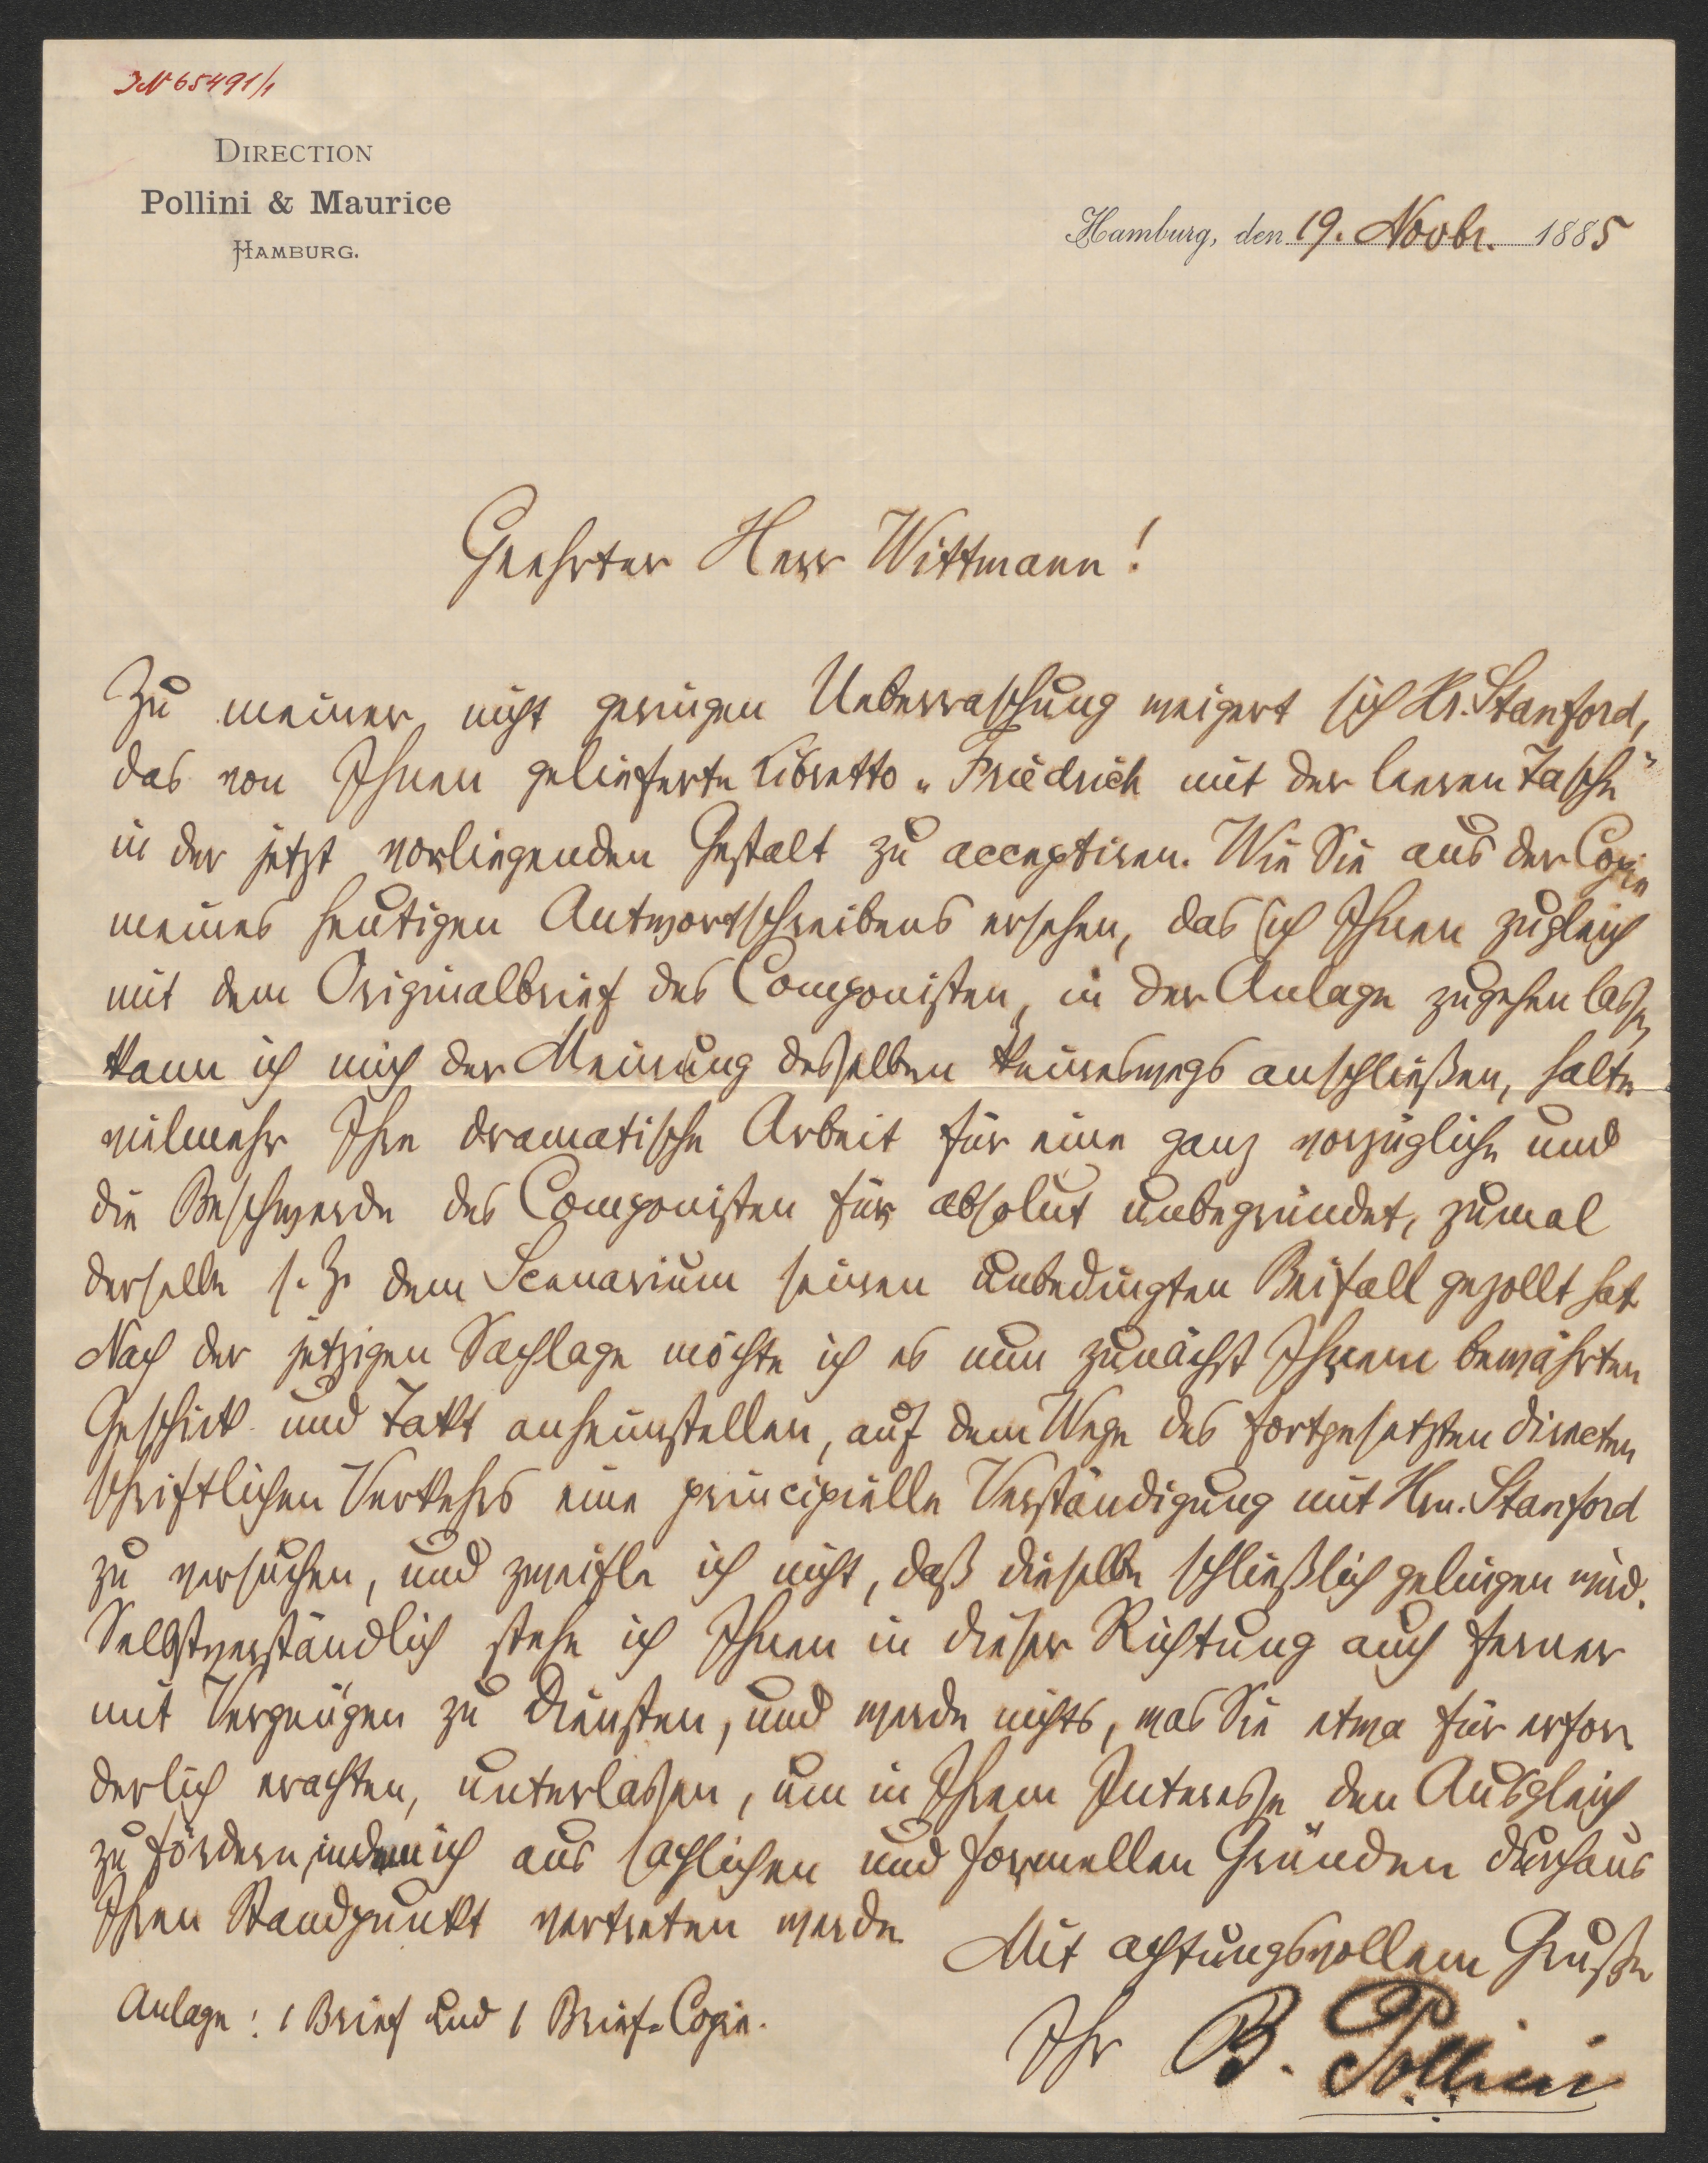 JN 65491/1
DIRECTION
Pollini & Maurice
HAMBURG.
Hamburg, den 19. Novbr. 1885
Geehrter Herr Wittmann!
Zu meiner nicht geringen Ueberraschung weigert sich Hr. Stanford,
das von Ihnen gelieferte Libretto „Friedrich mit der leeren Tasche"
in der jetzt vorliegenden Gestalt zu acceptiren. Wie Sie aus der Copie
meines heutigen Antwortschreibens ersehen, das ich Ihnen zugleich
mit dem Originalbrief des Componisten, in der Anlage zugehen lasse,
kann ich mich der Meinung desselben keineswegs anschließen, halte
vielmehr Ihre dramatische Arbeit für eine ganz vorzügliche und
die Beschwerde des Componisten für absolut unbegründet, zumal
derselbe s. Z. dem Scenarium seinen unbedingten Beifall gezollt hat.
Nach der jetzigen Sachlage möchte ich es nun zunächst Ihrem bewährten
Geschick und Takt anheimstellen, auf dem Wege des fortgesetzten directen
schriftlichen Verkehrs eine principielle Verständigung mit Hrn. Stanford
zu versuchen, und zweifle ich nicht, daß dieselbe schließlich gelingen wird.
Selbstverständlich stehe ich Ihnen in dieser Richtung auch ferner
mit Vergnügen zu Diensten, und werde nichts, was Sie etwa für erfor
derlich erachten, unterlassen, um in Ihrem Interesse den Ausgleich
zu fördern, indem ich aus sachlichen und formellen Gründen durchaus
Ihren Standpunkt vertreten werde
Mit achtungsvollem Gruße
Anlage: 1 Brief und 1 Brief-Copie.
Ihr B. Pollini